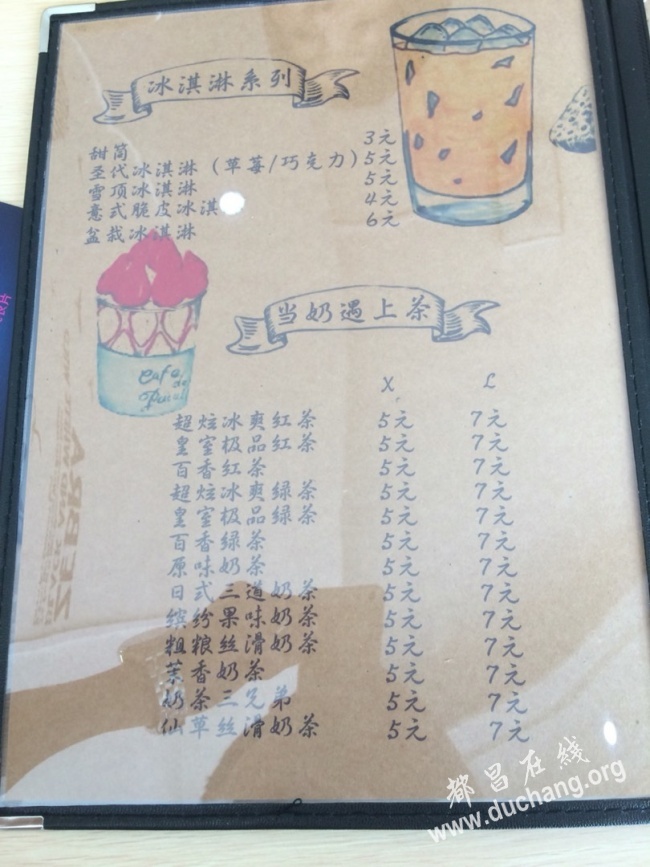 冰淇淋系列
甜筒 3元
圣代冰淇淋（草莓/巧克力） 5元
雪顶冰淇淋 5元
意式脆皮冰淇 4元
盆栽冰淇淋 6元
Cafe
de
当奶遇上茶
X L
超炫冰爽红茶 5元 7元
皇室极品红茶 5元 7元
百香红茶 5元 7元
超炫冰爽绿茶 5元 7元
皇室极品绿茶 5元 7元
百香绿茶 5元 7元
原味奶茶 5元 7元
日式三道奶茶 5元 7元
缤纷果味奶茶 5元 7元
粗粮丝滑奶茶 5元 7元
茉香奶茶 5元 7元
奶茶三兄弟 5元 7元
仙草丝滑奶茶 5元 7元
ZEBRA
都昌在线
www.duchang.org